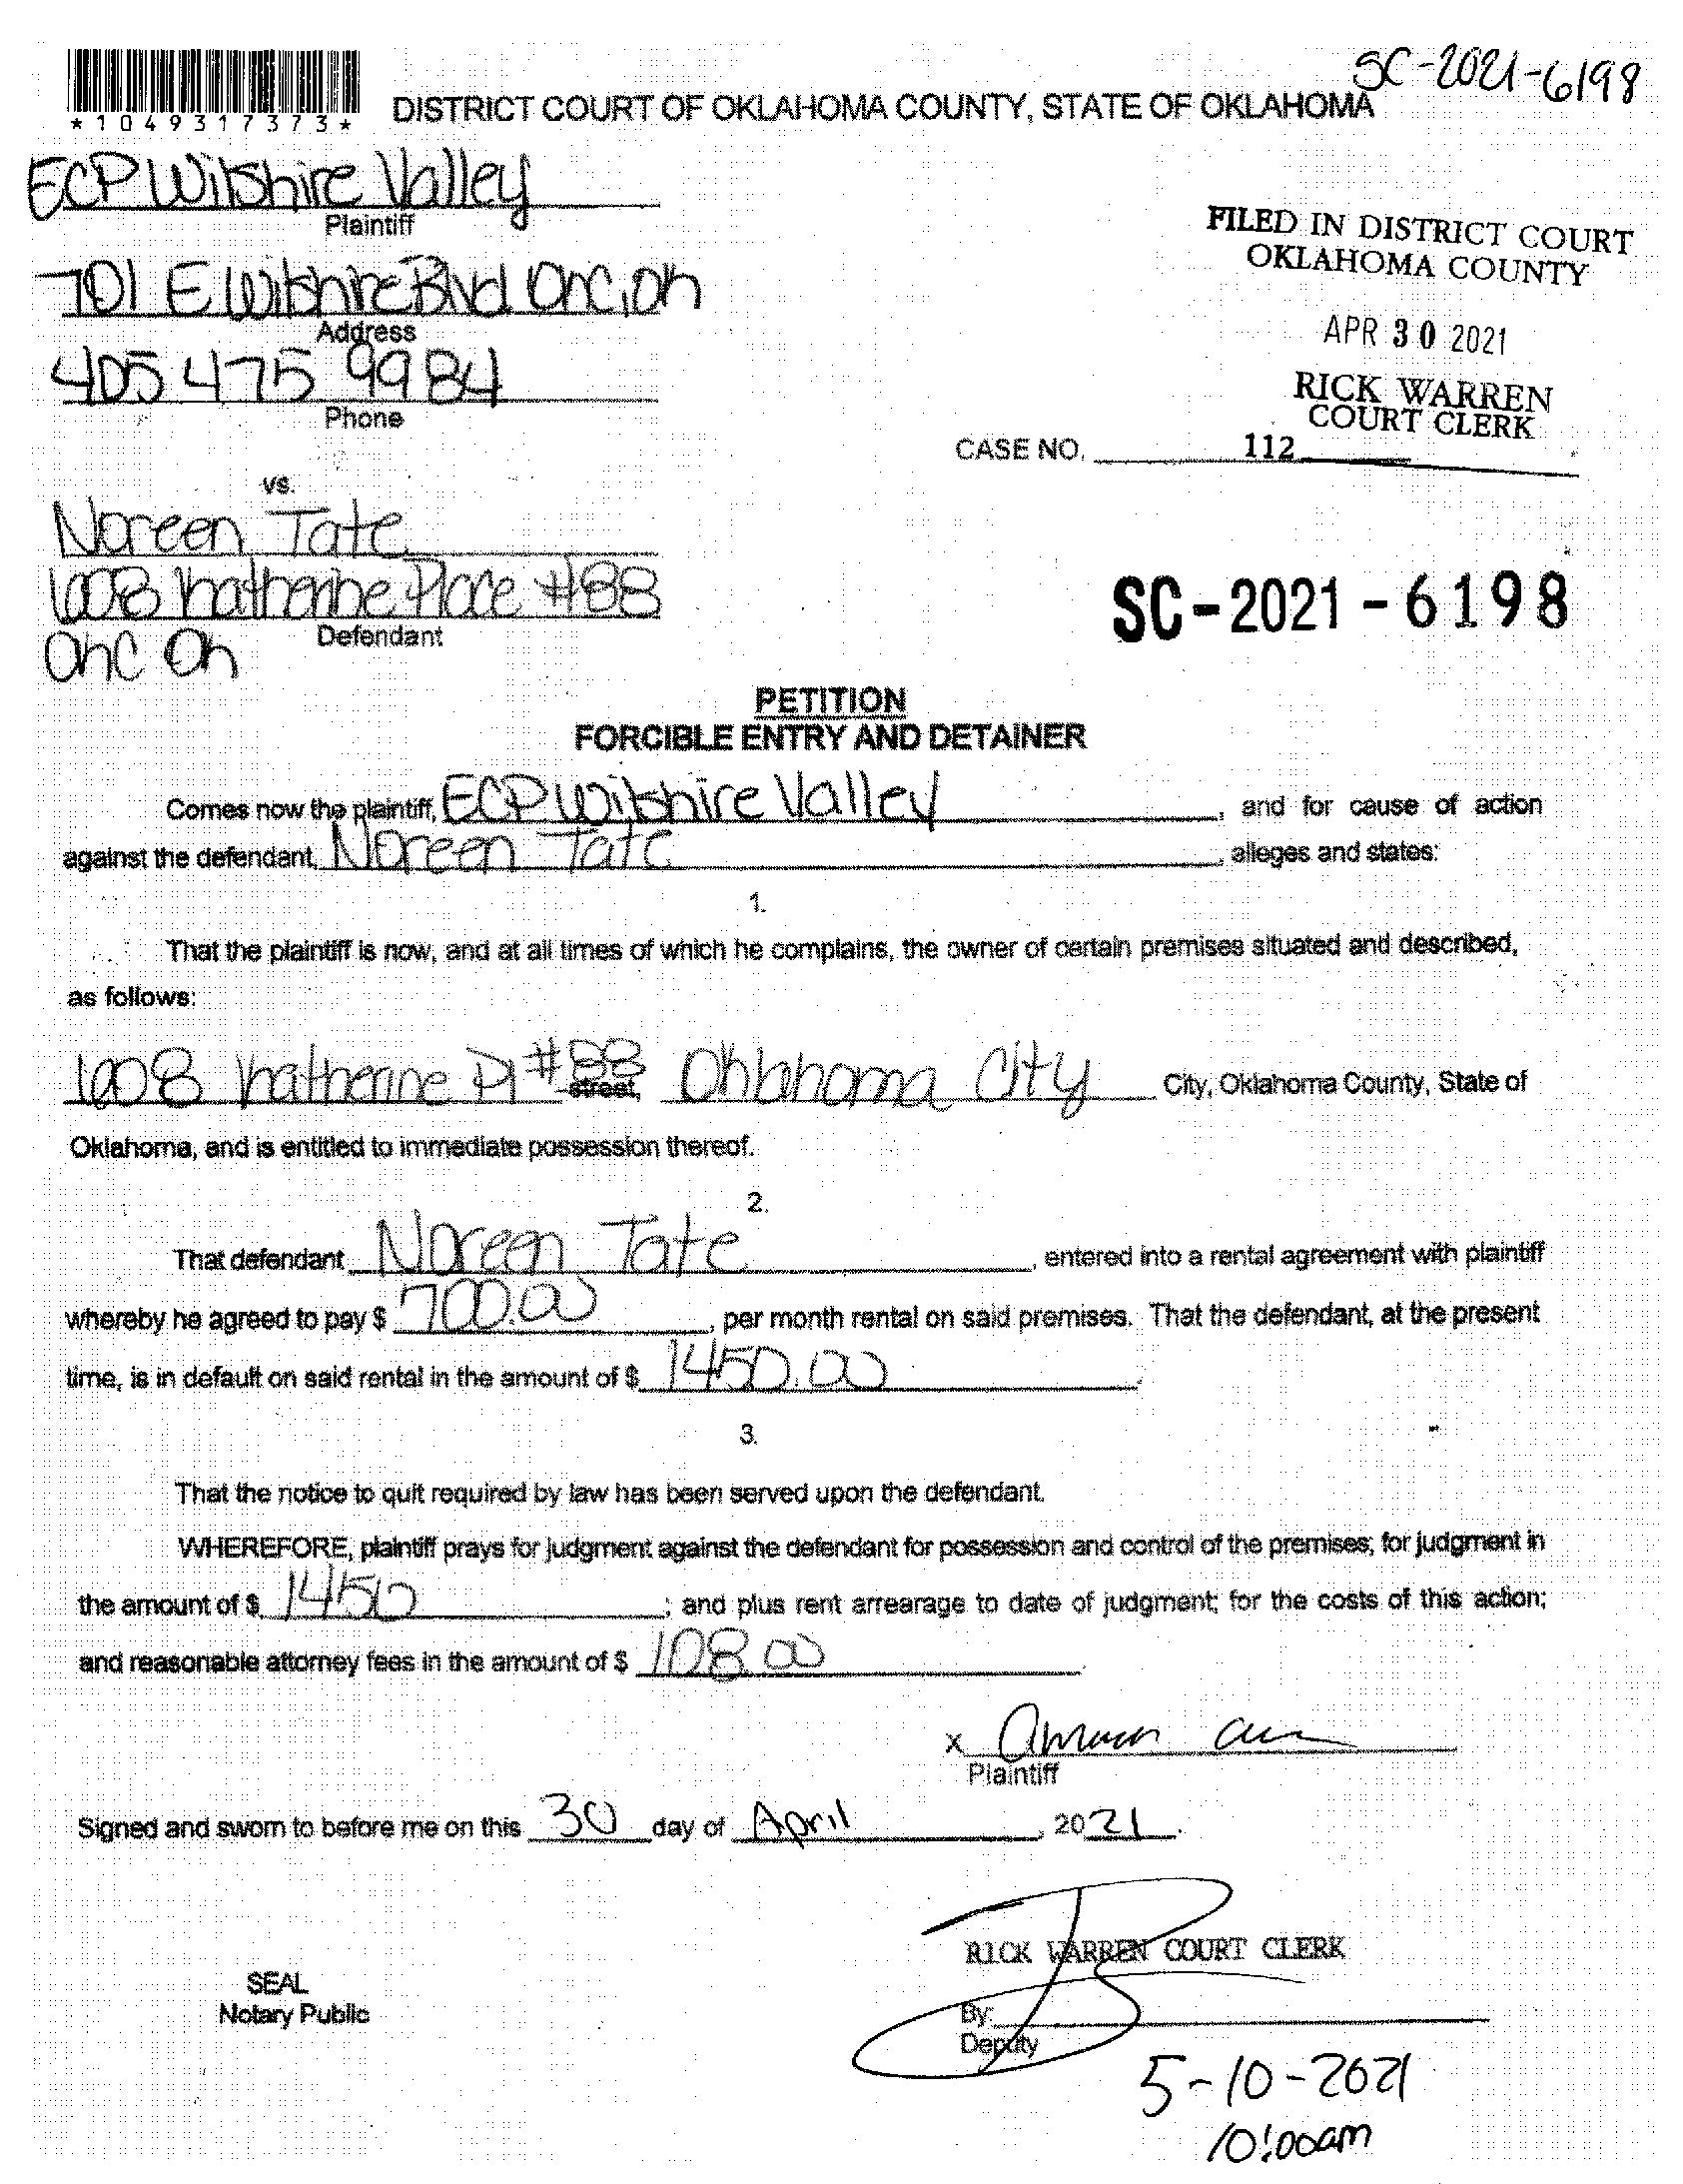 SC-2021-6198
*1049317373*
DISTRICT COURT OF OKLAHOMA COUNTY, STATE OF OKLAHOMA
ECP Wilshire Valley
Plaintiff
701 E Wilshire Blvd OKC, OK
Address
405 475 9984
Phone
FILED IN DISTRICT COURT
OKLAHOMA COUNTY
APR 30 2021
RICK WARREN
COURT CLERK
CASE NO. 112
vs.
Noreen Tate
1008 Katherine Place #88
Defendant
OKC OK
SC-2021-6198
PETITION
FORCIBLE ENTRY AND DETAINER
Comes now the plaintiff, ECP Wilshire Valley, and for cause of action
against the defendant, Noreen Tate, alleges and states:
1.
That the plaintiff is now, and at all times of which he complains, the owner of certain premises situated and described,
as follows:
1008 Katherine Pl #88 street, Oklahoma City City, Oklahoma County, State of
Oklahoma, and is entitled to immediate possession thereof.
2.
That defendant Noreen Tate, entered into a rental agreement with plaintiff
whereby he agreed to pay $ 700.00, per month rental on said premises. That the defendant, at the present
time, is in default on said rental in the amount of $ 1450.00.
3.
That the notice to quit required by law has been served upon the defendant.
WHEREFORE, plaintiff prays for judgment against the defendant for possession and control of the premises; for judgment in
the amount of $ 1450; and plus rent arrearage to date of judgment; for the costs of this action;
and reasonable attorney fees in the amount of $ 108.00.
x
Plaintiff
Signed and sworn to before me on this 30 day of April, 2021.
RICK WARREN COURT CLERK
SEAL
Notary Public
By:
Deputy
5-10-2021
10:00am